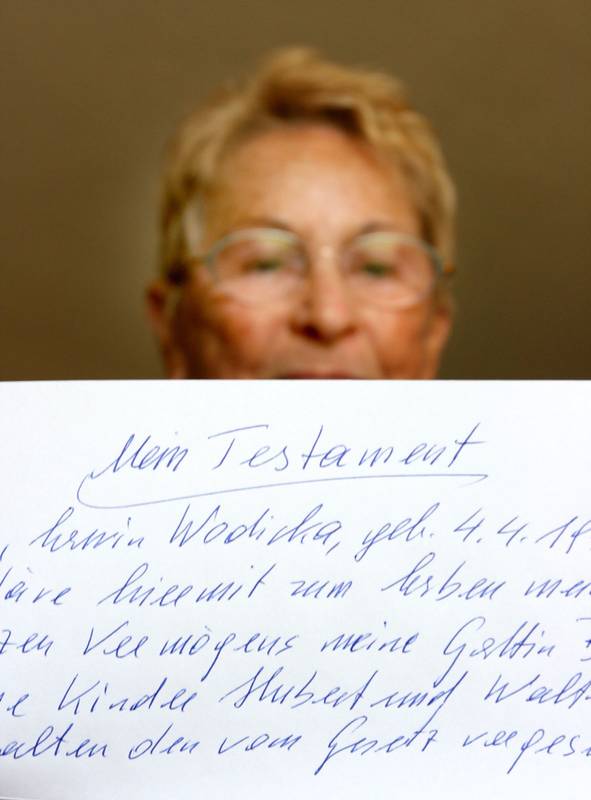 Mein Testament
, Erwin Wodicka, geb. 4.4.19
läre hiermit zum Erben mei
zen Vermögens meine Gattin
ne Kinder Hubert und Walt
alten den vom Gesetz vorges